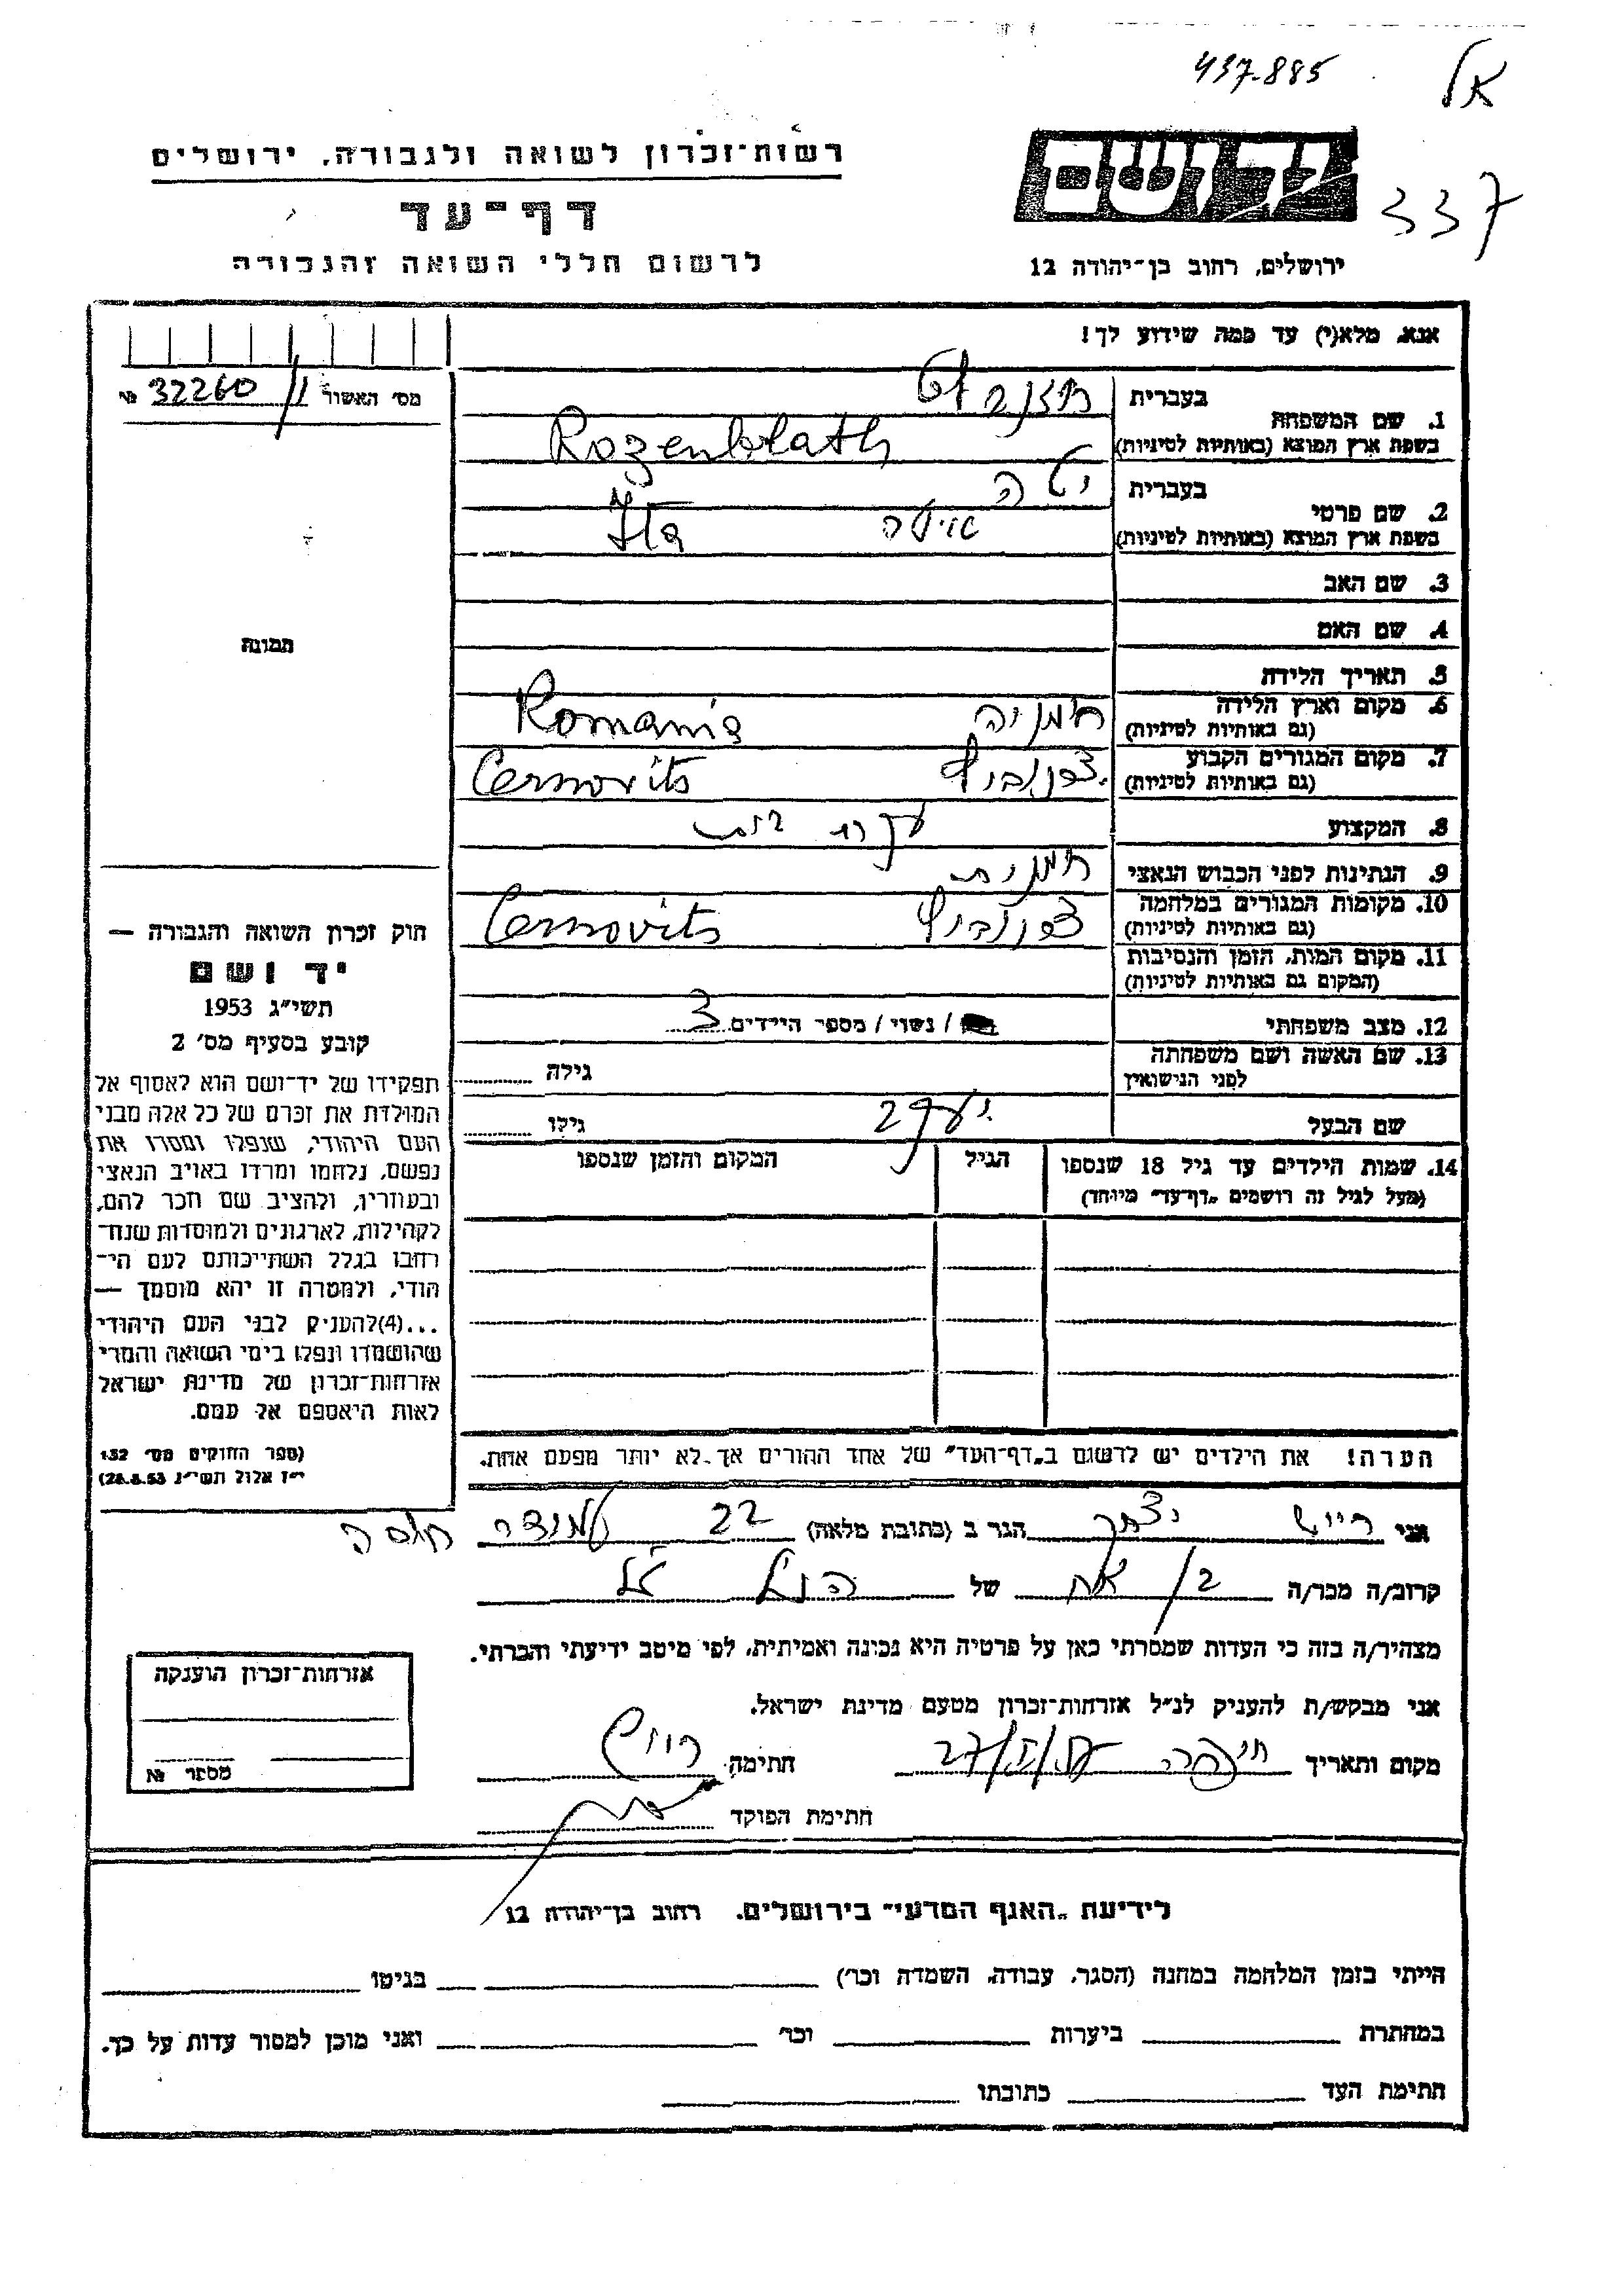 437.885
אל
רשות־זכרון לשואה ולגבורה, ירושלים
יד ושם
337
דף־עד
לרשום חללי השואה והגבורה
ירושלים, רחוב בן־יהודה 12
אנא, מלא(י) עד כמה שידוע לך!
מס׳ האשור 32260 №
בעברית
1. שם המשפחה
בשפת ארץ המוצא (באותיות לטיניות) Rozenblath
בעברית יטה
2. שם פרטי
בשפת ארץ המוצא (באותיות לטיניות) איטה Ita
3. שם האב
4. שם האם
תמונה
5. תאריך הלידה
6. מקום וארץ הלידה רומניה Romania
(גם באותיות לטיניות)
7. מקום המגורים הקבוע צרנוביץ Cernovits
(גם באותיות לטיניות)
8. המקצוע עקרת בית
9. הנתינות לפני הכבוש הנאצי רומנית
10. מקומות המגורים במלחמה צרנוביץ Cernovits
(גם באותיות לטיניות)
11. מקום המות, הזמן והנסיבות
(המקום גם באותיות לטיניות)
12. מצב משפחתי / נשוי / מספר הילדים 3
13. שם האשה ושם משפחתה גילה
לפני הנישואין
שם הבעל יעקב גילו
14. שמות הילדים עד גיל 18 שנספו הגיל המקום והזמן שנספו
(מעל לגיל זה רושמים „דף־עד״ מיוחד)
חוק זכרון השואה והגבורה —
יד ושם
תשי״ג 1953
קובע בסעיף מס׳ 2
תפקידו של יד־ושם הוא לאסוף אל
המולדת את זכרם של כל אלה מבני
העם היהודי, שנפלו ומסרו את
נפשם, נלחמו ומרדו באויב הנאצי
ובעוזריו, ולהציב שם וזכר להם,
לקהילות, לארגונים ולמוסדות שנח־
רבו בגלל השתייכותם לעם הי־
הודי, ולמטרה זו יהא מוסמך —
...(4)להעניק לבני העם היהודי
שהושמדו ונפלו בימי השואה והמרי
אזרחות־זכרון של מדינת ישראל
לאות היאספם אל עמם.
(ספר החוקים מס׳ 132
י״ז אלול תשי״ג 28.8.53)
הערה! את הילדים יש לרשום ב„דף־העד״ של אחד ההורים אך לא יותר מפעם אחת.
אני רייש יצחק הגר ב (כתובת מלאה) 22
קרוב/ה מכר/ה של הנ״ל
מצהיר/ה בזה כי העדות שמסרתי כאן על פרטיה היא נכונה ואמיתית, לפי מיטב ידיעתי והכרתי.
אני מבקש/ת להעניק לנ״ל אזרחות־זכרון מטעם מדינת ישראל.
מקום ותאריך חיפה 27/ חתימה
חתימת הפוקד
אזרחות־זכרון הוענקה
מספר №
לידיעת „האגף המדעי״ בירושלים, רחוב בן־יהודה 12
הייתי בזמן המלחמה במחנה (הסגר, עבודה, השמדה וכר׳) בגיטו
במחתרת ביערות וכר׳ ואני מוכן למסור עדות על כך.
חתימת העד כתובתו